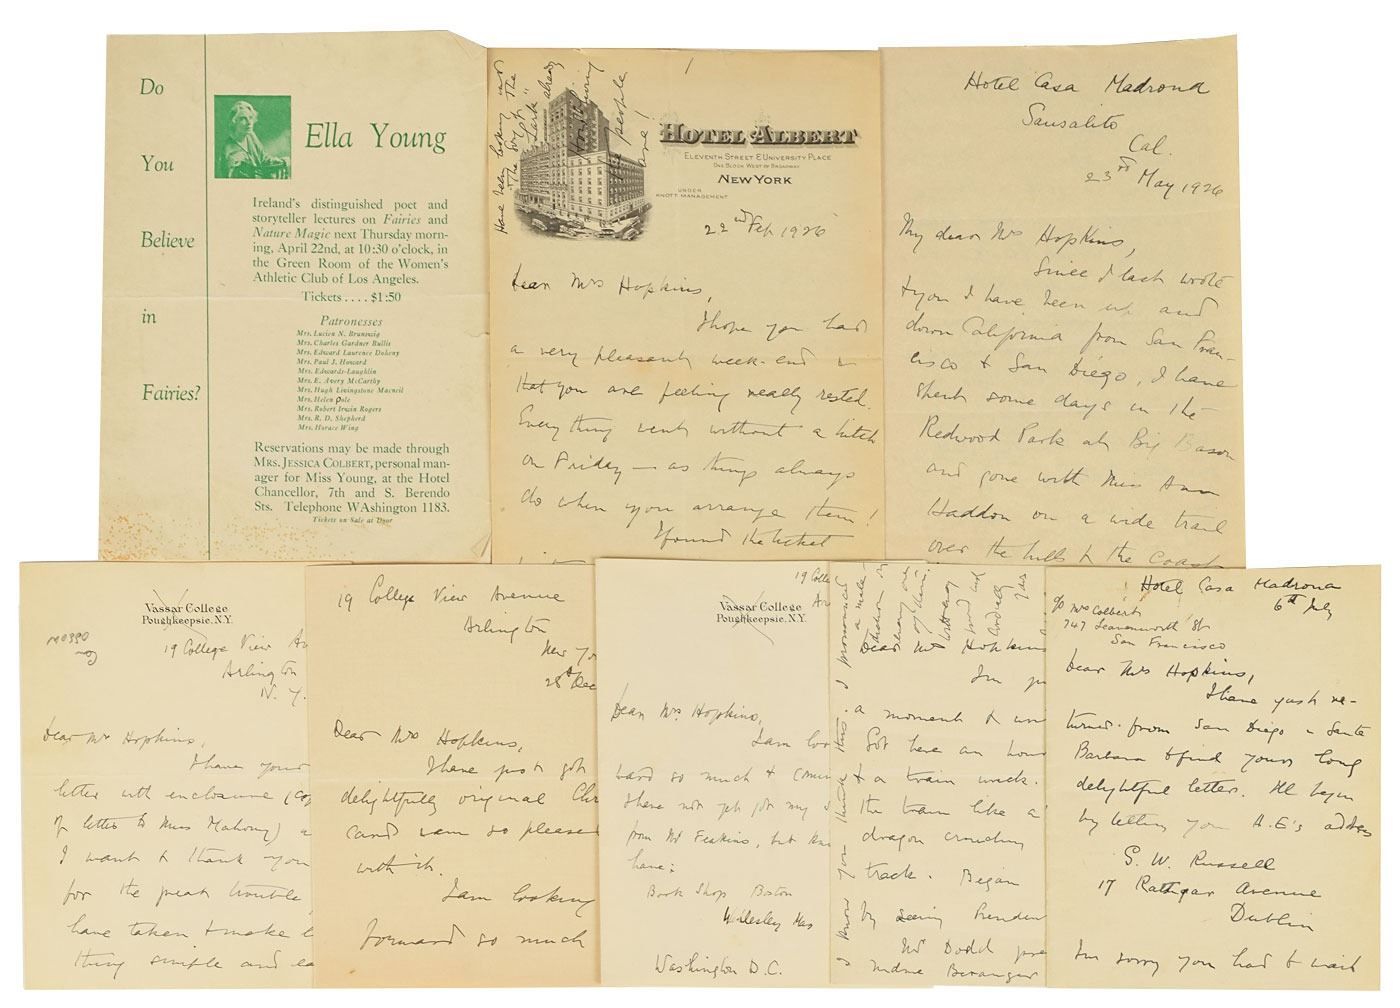 Do
You
Believe
in
Fairies?
Ella Young
Ireland's distinguished poet and
storyteller lectures on Fairies and
Nature Magic next Thursday morn-
ing, April 22nd, at 10:30 o'clock, in
the Green Room of the Women's
Athletic Club of Los Angeles.
Tickets . . . . $1:50
Patronesses
Mrs. Lucien N. Brunswig
Mrs. Charles Gardner Bullis
Mrs. Edward Laurence Doheny
Mrs. Paul J. Howard
Mrs. Edwards-Laughlin
Mrs. E. Avery McCarthy
Mrs. Hugh Livingstone Macneil
Mrs. Helen Pole
Mrs. Robert Irwin Rogers
Mrs. R. D. Shepherd
Mrs. Horace Wing
Reservations may be made through
Mrs. Jessica Colbert, personal man-
ager for Miss Young, at the Hotel
Chancellor, 7th and S. Berendo
Sts. Telephone WAshington 1183.
Tickets on Sale at Door
Have been looking
"The Son of the
Lark" already
How
the people
are!
Hotel Albert
Eleventh Street & University Place
One Block West of Broadway
New York
Under
Knott Management
22nd Feb 1926
Dear Mrs Hopkins,
I hope you had
a very pleasant week-end &
that you are feeling really rested.
Everything went without a hitch
on Friday — as things always
do when you arrange them!
I found the ticket
Hotel Casa Madrona
Sausalito
Cal.
23rd May 1926
My dear Mrs Hopkins,
Since I last wrote
to you I have been up and
down California from San Fran-
cisco to San Diego, I have
spent some days in the
Redwood Park at Big Bason
and gone with Miss Ann
Haddon on a wide trail
over the hills to the coast
Vassar College
Poughkeepsie, N.Y.
19 College View Av
Arlington
N. Y.
Dear Mrs Hopkins,
I have your
letter with enclosure (co
of letter to Miss Mahony) a
I want to thank you
for the great trouble
have taken to make
thing simple and ea
19 College View Avenue
Arlington
New Yo
28th Dec
Dear Mrs Hopkins,
I have just got
delightfully original Chr
card & am so pleased
with it.
I am looking
forward so much
19 Colle
Ar
Vassar College
Poughkeepsie, N.Y.
Dear Mrs Hopkins,
I am loo
ward so much to comin
I have not yet got my
from Mr Feakins, but
have:
Book Shop Boston
Wellesley Mas
Washington D.C.
Dear Mrs Hopkins
I'm
a moment to
Got here an hou
to a train wreck.
the train like a
dragon
track. Began
by seeing
Mr Dodd
Hotel Casa Madrona
6th July
c/o Mrs Colbert
747 Leavenworth St
San Francisco
Dear Mrs Hopkins,
I have just re-
turned from San Diego & Santa
Barbara to find your long
delightful letter. I'll begin
by letting you A.E's address
G. W. Russell
17 Rathgar Avenue
Dublin
I'm sorry you had to wait